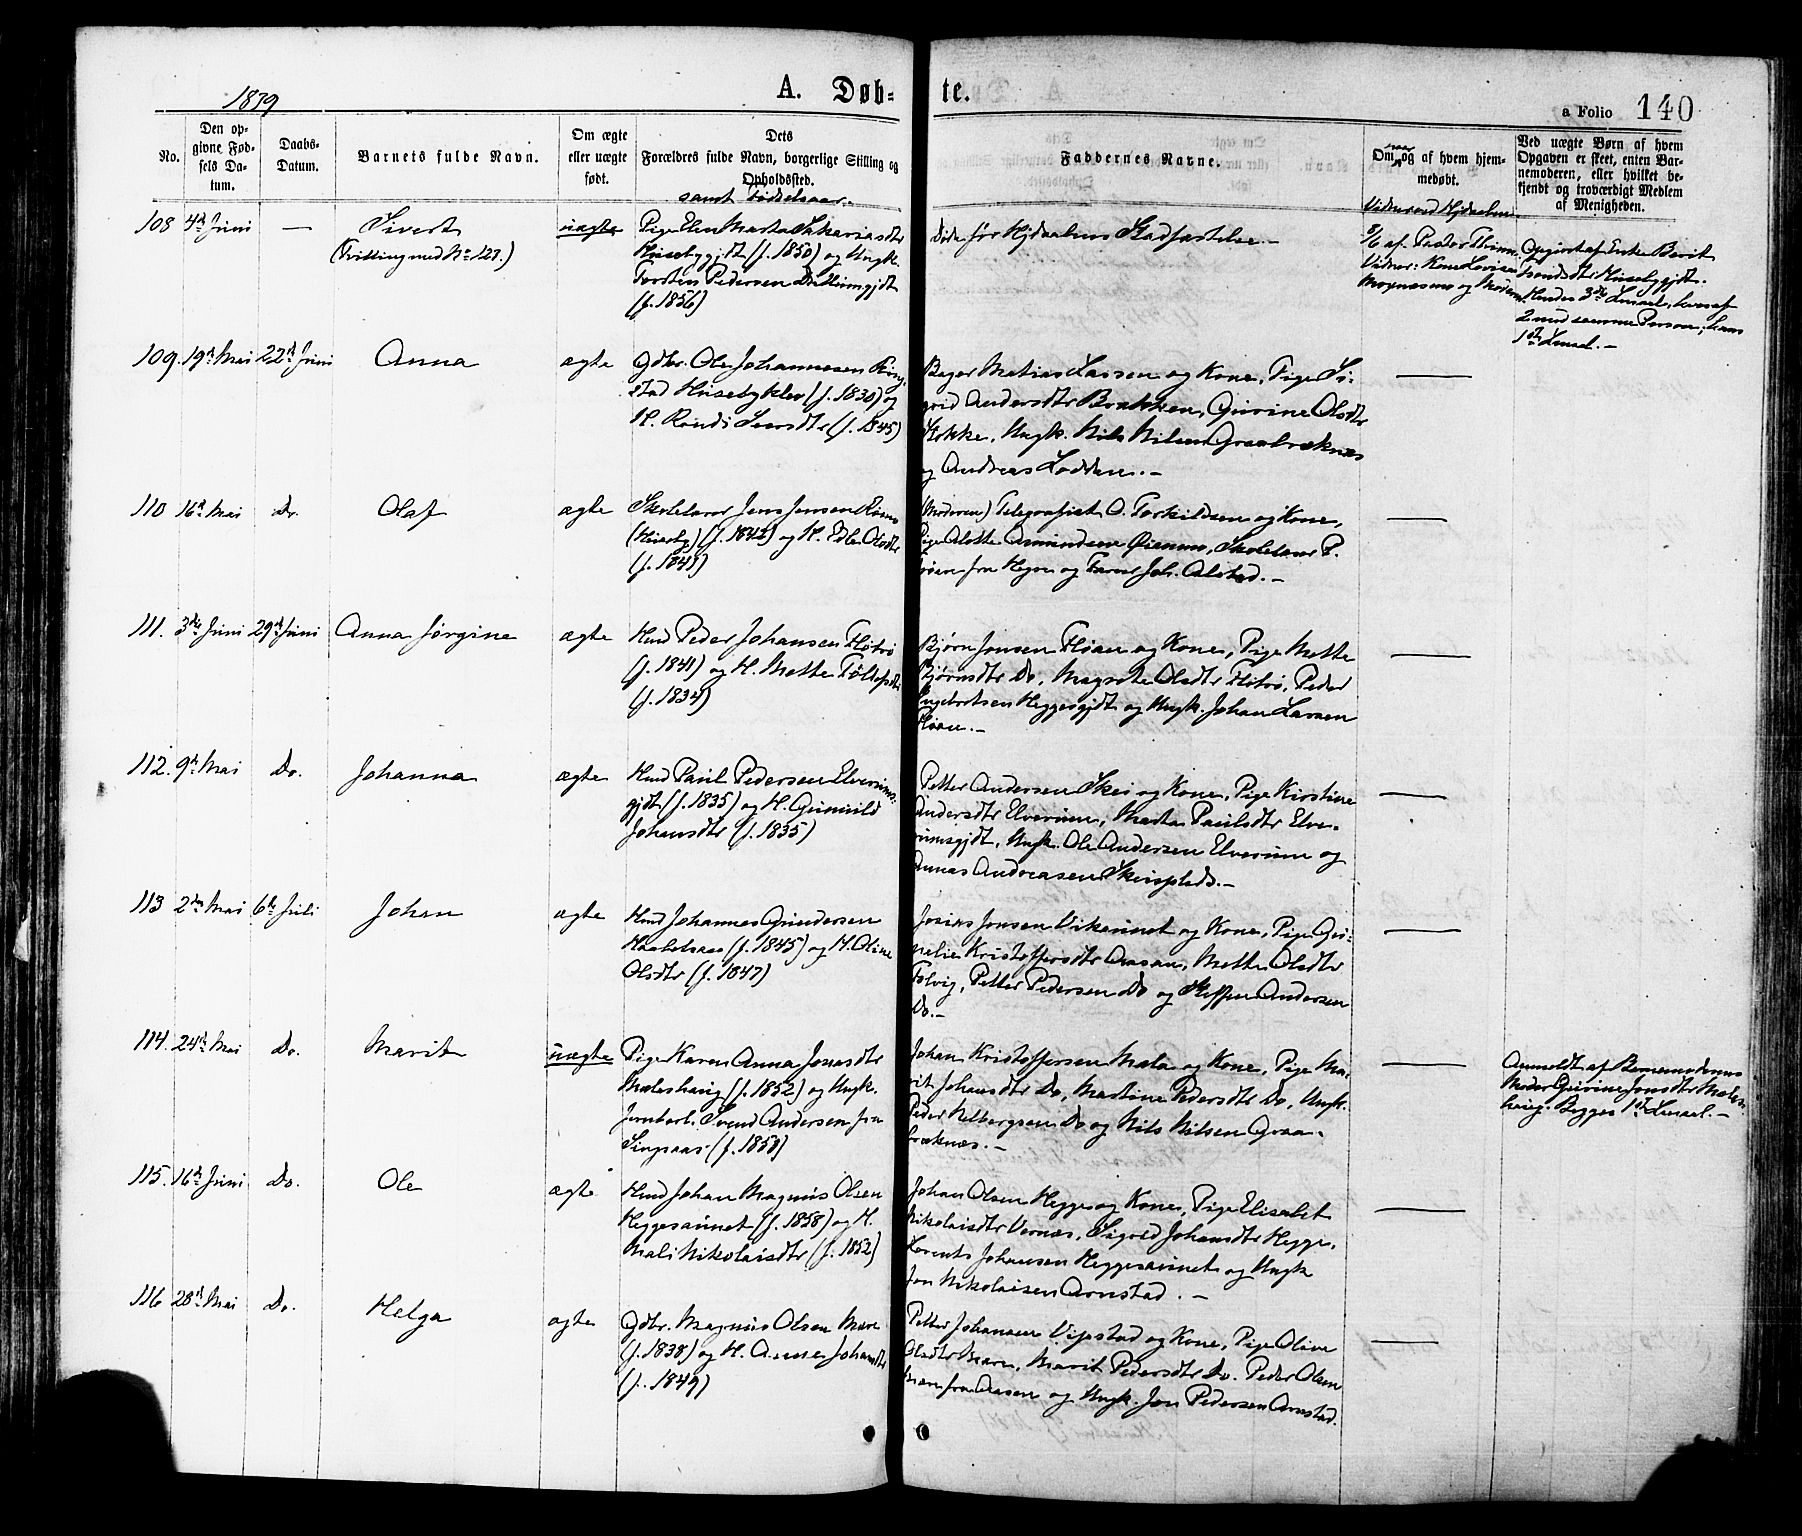 1879
A. Døb-
te.
a Folio 140
No.
Den op-
givne Fød-
sels Da-
tum.
Daabs-
Datum.
Barnets fulde Navn.
Om ægte
eller uægte
født.
Dets
Forældres fulde Navn, borgerlige Stilling og
Opholdssted.
samt Fødselsaar.
Faddernes Navne.
Om og af hvem hjem-
medøbt.
Ved uægte Børn af hvem
Opgaven er skeet, enten Bar-
nemoderen, eller hvilket be-
kjendt og troværdigt Medlem
af Menigheden.
108 4de Juni — Sivert uægte
(Tvilling med No 127.)
Pige Elen Marta Sakariasdtr
Husebygjdt (f. 1850) og Ungk.
Torsten Pedersen
(f. 1856)
Døde før Hjdaabens Stadfæstelse. —
Vidner ved Hjdaaben
5/6 af. Pastor
Vidner: Kone Lovise
og Moderen
Opgivet af Enke Berit
Husebygjdt.
Hendes 3die Leiermaal, hvoraf
2 med samme Person, hans
1ste —
109. 19de Mai 22de Juni Anna ægte
Gdbr. Ole Johannesen
Husebyklev (f. 1830) og
H. Randi Iversdtr (f. 1845)
Bager Matias Larsen og Kone, Pige Si-
grid Andersdtr Brækken, Gurine Olsdtr
Stokke, Ungk. Nils Nilsen Graabræknes
og Andreas Lodden. —
110 16de Mai Do. Olaf ægte
Skolelærer Jens Jensen
(Huseby) (f. 1842) og H. Olsdtr
(f. 1848)
(Moderen) Telegrafist O. Torkildsen og Kone,
Pige Amundsen Øianmo, Skolelærer P.
fra Hegre og Farver Joh. Alstad. —
111. 3die Juni 29de Juni Anna Jørgine ægte
Hmd Peder Johansen
(f. 1841) og H. Mette
(f. 1834)
Bjørn Jonsen Floan og Kone, Pige Mette
Bjørnsdtr Do, Magrete Olsdtr Peder
Ingebretsen Heggesgjdt og Ungk. Johan Larsen
Floan. —
112. 9de Mai Do. Johanna ægte
Hmd Paul Pedersen Elverums-
gjdt (f. 1835) og H. Gunnild
Johansdtr (f. 1835)
Petter Andersen Skei og Kone, Pige Kirstine
Andersdtr Elverum, Marta Paulsdtr Elve-
rumsgjdt, Ungk. Ole Andersen Elverum og
Annas Andreasen Skeisplads. —
113 2den Mai 6te Juli Johan ægte
Hmd Johannes Gundersen
(f. 1845) og H. Oline
Olsdtr (f. 1847)
Josias Jonsen Vikaunet og Kone, Pige
Kristoffersdtr Aasan, Mette Olsdtr
Tolvig, Petter Pedersen Do og Steffen Andersen
Do. —
114. 24de Mai Do. Marit uægte
Pige Karen Anna Jonasdtr
Mæleshaug (f. 1852) og Ungk.
Jernbarb. Svend Andersen fra
Singsaas (f. 1858)
Johan Kristoffersen Mæla og Kone, Pige Ma-
rit Johansdtr Do, Martine Pedersdtr Do, Ungk.
Peder Do og Nils Nilsen Graa-
bræknæs. —
Anmeldt af Barnemoderens
Moder Gurine Jonsdtr Mæles-
haug. Begges 1ste —
115. 16de Juni Do. Ole ægte
Hmd Johan Magnus Olsen
Heggesaunet (f. 1858) og H.
Mali Nikolaisdtr (f. 1852)
Johan Olsen Hegge og Kone, Pige Elisabet
Nikolaisdtr Værnæs, Sigrid Johansdtr Hegge,
Lorents Johansen Heggesaunet og Ungk
Jon Nikolaisen Arnstad. —
116 28de Mai Do. Helga ægte
Gdbr. Magnus Olsen Mære
(f. 1838) og H. Anne Johansdtr
(f. 1849)
Petter Johansen Vigstad og Kone, Pige Oline
Olsdtr Mære, Marit Pedersdtr Do. Peder Olsen
Mære fra Aasen og Ungk. Jon Pedersen Arnstad.